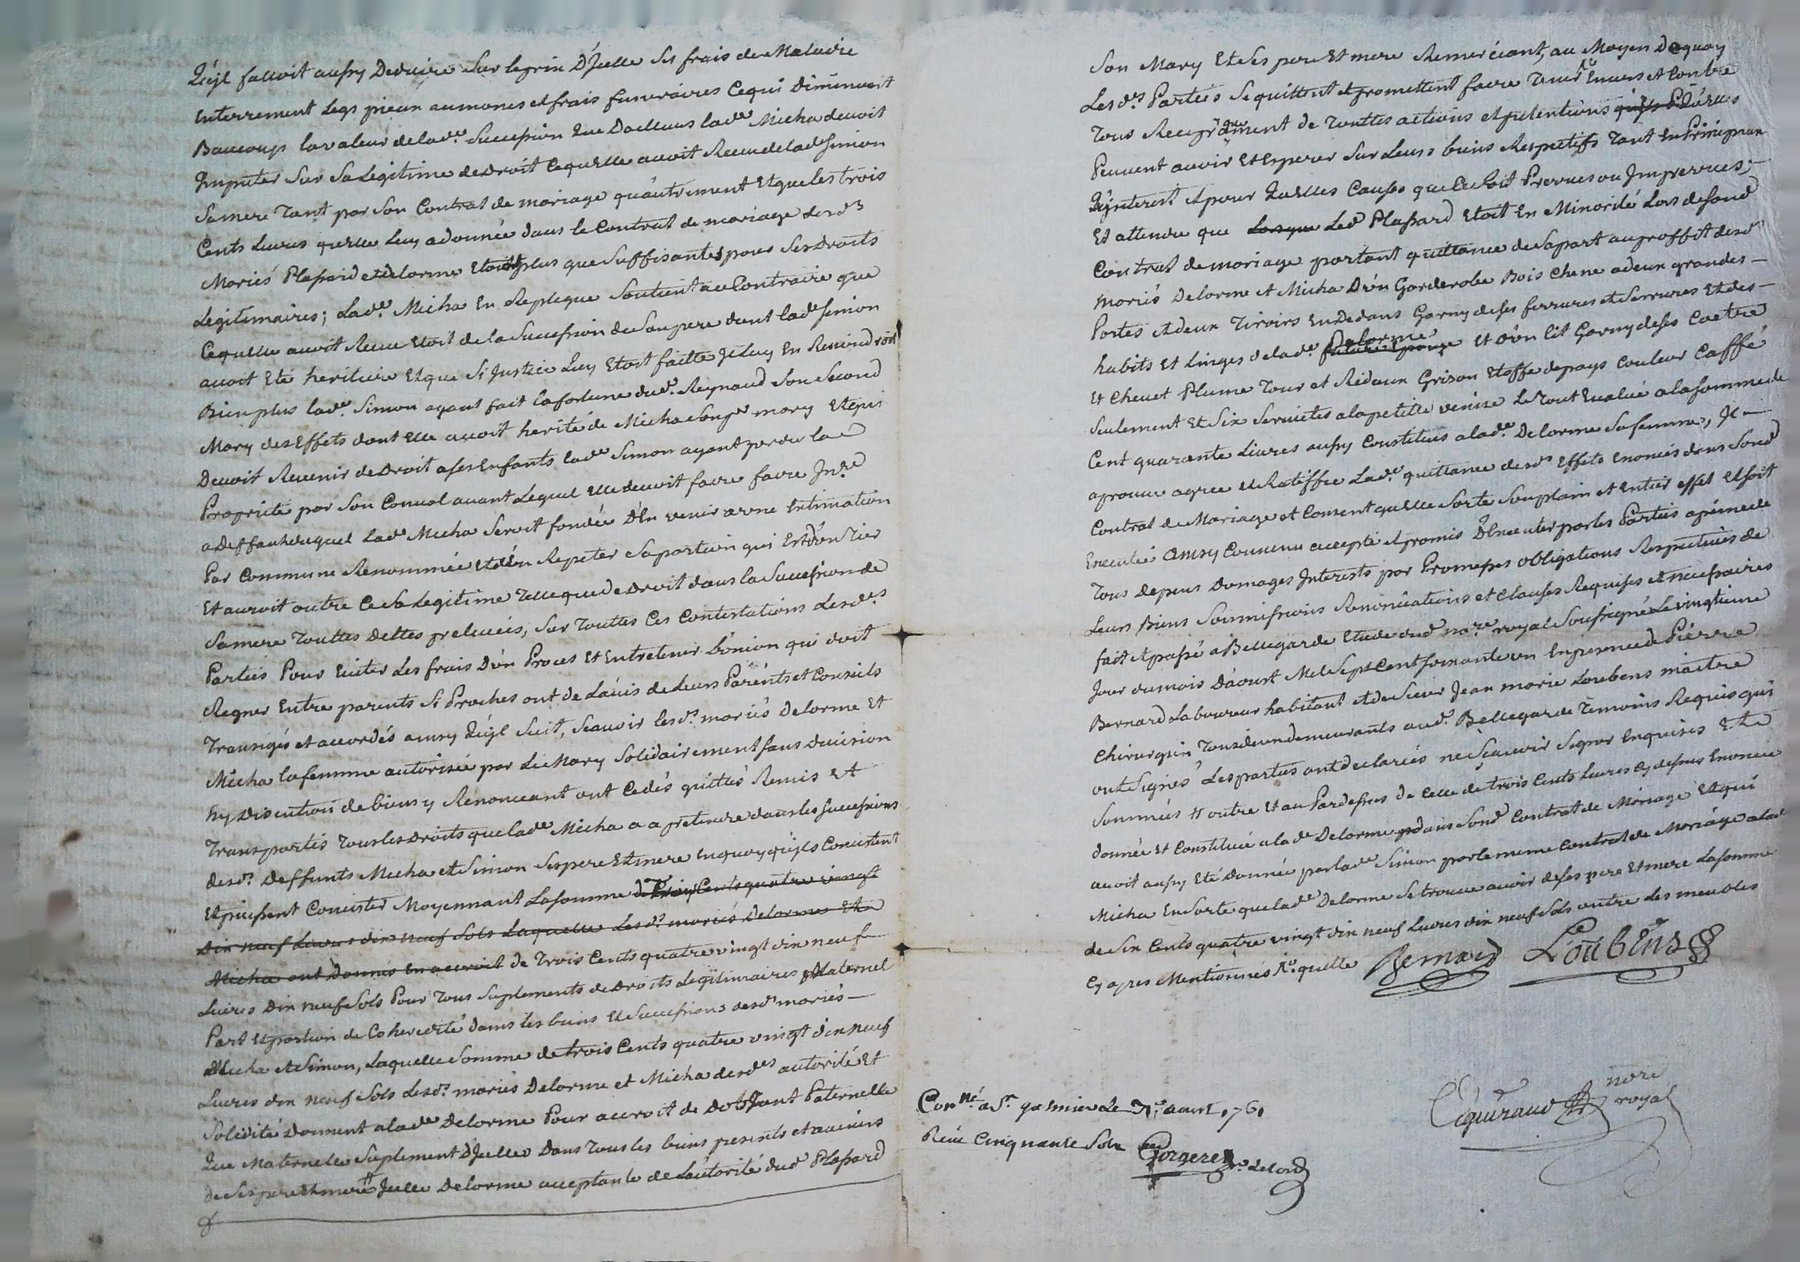 Quÿl falloit aussy Deduire sur le prix D'Jcelle Ses frais de Maladie
Enterrement Legs pieux aumones et frais funeraires Ce qui Diminuoit
Baucoup la valeur de lad.e Succession que Dailleurs lad.e Micha devoit
Imputer Sur Sa Legitime de Droit Ce quelle avoit Receu de lad.e Simon
Sa mere Tant par Son Contrat de mariage qu'autrement Et que les trois
Cents Livres quelle Luy a donnée dans le Contrat de mariage desd.s
Mariés Plassard et Delorme Etoit plus que Suffisantes pour Ses Droits
Legitimaires; Lad.e Micha En Replique Soutient au Contraire que
Ce quelle avoit Receu Etoit de la Succession de Son pere dont lad.e Simon
avoit Eté heritiere Et que Si Justice Luy Etoit faitte Jl luy En Reviendroit
Bien plus lad.e Simon ayant fait la fortune dud. Reynaud Son Second
Mary des Effets dont Elle avoit herité de Micha Son p.r mary Et qui
Devoit Revenir de Droit a ses Enfants lad.e Simon ayant perdu la
Propriété par Son Convol avant Lequel Elle devoit faire faire Jn.re
a Deffaut duquel lad.e Micha Seroit fondée D'En venir a une Estimation
Par Commune Renommée et d'en Repeter Sa portion qui Est d'un Tier
Et auroit outre Ce Sa Legitime Telle que de Droit dans la Succession de
Sa mere Touttes Dettes prelevées, Sur Touttes Ces Contestations Lesd.es
Parties Pour Eviter Les frais D'un Proces Et Entretenir L'union qui doit
Regner Entre parents Si Proches ont de L'avis de Leurs Parents et Conseils
Transigés et accordés ainsy Quÿl Suit, Scavoir lesd.s mariés Delorme Et
Micha Sa femme autorisée par Le Mary Solidairement Sans division
Ny Discution de biens y Renonceant ont Cedés quittés Remis Et
Transportés Tous les Droits que lad.e Micha a a pretendre dans les Successions
desd.s Deffunts Micha et Simon Ses pere Et mere En quoy quÿls Consistent
Et puissent Consister Moyennant La Somme de Trois Cents quatre vingt
Dix neuf Livres dix neuf Sols Laquelle Lesd.s mariés Delorme Et
Micha ont Donnés En accroit de Trois Cents quatre vingt dix neuf
Livres Dix neuf Sols Pour Tous Suplements de Droits Legitimaires Maternel
Part Et portion de Coheredité dans les biens Et Successions desd.s mariés
Micha et Simon, Laquelle Somme de trois Cents quatre vingt dix neuf
Livres dix neuf Sols Lesd.s mariés Delorme et Micha desd.es autorité Et
Solidité Donnent a lad.e Delorme Pour accroit de Dot Tant Paternelle
Que Maternelle Suplement D'Jcelles Dans Tous les biens presents et avenirs
de Ses pere Et mere Jcelle Delorme acceptante de L'autorité dud. Plassard
Son Mary Et Ses pere Et mere Remerciant, au Moyen De quoy
Lesd.es Parties Se quittent et promettent faire Tenir Envers et Contre
Tous Reciproquement de Touttes actions et pretentions
Peuvent avoir Et Esperer Sur Leurs biens Respectifs Tant En Principaux
Qu'jnterest Et pour Quelles Causes que Ce Soit Prevues ou Jmprevues,
Et attendu que Lorsque Led. Plassard Etoit En Minorité Lors de Sond.
Contrat de mariage portant quittance de Sa part au proffit desd.s
mariés Delorme et Micha D'un Garderobe Bois Chene a deux grandes
Portes et deux Tiroirs En Dedans Garny de Ses ferrures et Serrures Et des
habits Et Linges de lad.e Delorme Et d'un Lit Garny de Ses Coetre
Et Chevet Plume Tour et Rideaux Grizon Etoffe de pays Couleur Caffé
Seulement Et Six Serviettes a la petite venise Le Tout Evalué a la Somme de
Cent quarante Livres aussy Constitués a lad.e Delorme Sa femme, Jl
aprouve agree et Ratiffie Lad.e quittance desd.s Effets Enoncés dans Sond.
Contrat de Mariage et Consent quelle Sorte Son plain et Entier Effet Et Soit
Executée ainsy Convenu accepté et promis D'Executer par les Parties a peine de
Tous Depens Domages Jnterests par Promesses obligations Respectives de
Leurs Biens Soumissions Renonciations et Clauses Requises et necessaires
fait et passé a Bellegarde Etude dud. no.re royal Soussigné Le vingtieme
Jour du mois D'aoust Mil Sept Cent soixante un En presence de Pierre
Bernard Laboureur habitant et de Sieur Jean Marie Loubens maitre
Chirurgien Tous deux demeurants aud. Bellegarde Temoins Requis qui
ont Signés Les parties ont declarés ne Scavoir Signer Enquises Et
Sommés Et outre Et au Par dessus de Celle de trois Cents Livres Cy dessus Enoncée
donnée Et Constituée a lad.e Delorme dans Sond. Contrat de Mariage Et qui
avoit aussy Eté Donnée par lad.e Simon par le meme Contrat de Mariage a lad.e
Micha En Sorte que lad.e Delorme Se trouve avoir de Ses pere Et mere La Somme
de Six Cents quatre vingt dix neuf Livres dix neuf Sols outre Les meubles
Cy apres Mentionnés Bernard Loubens
Con.lé a S.t galmier Le 31 aout 1761
Reçu Cinquante Sols
nore
royal